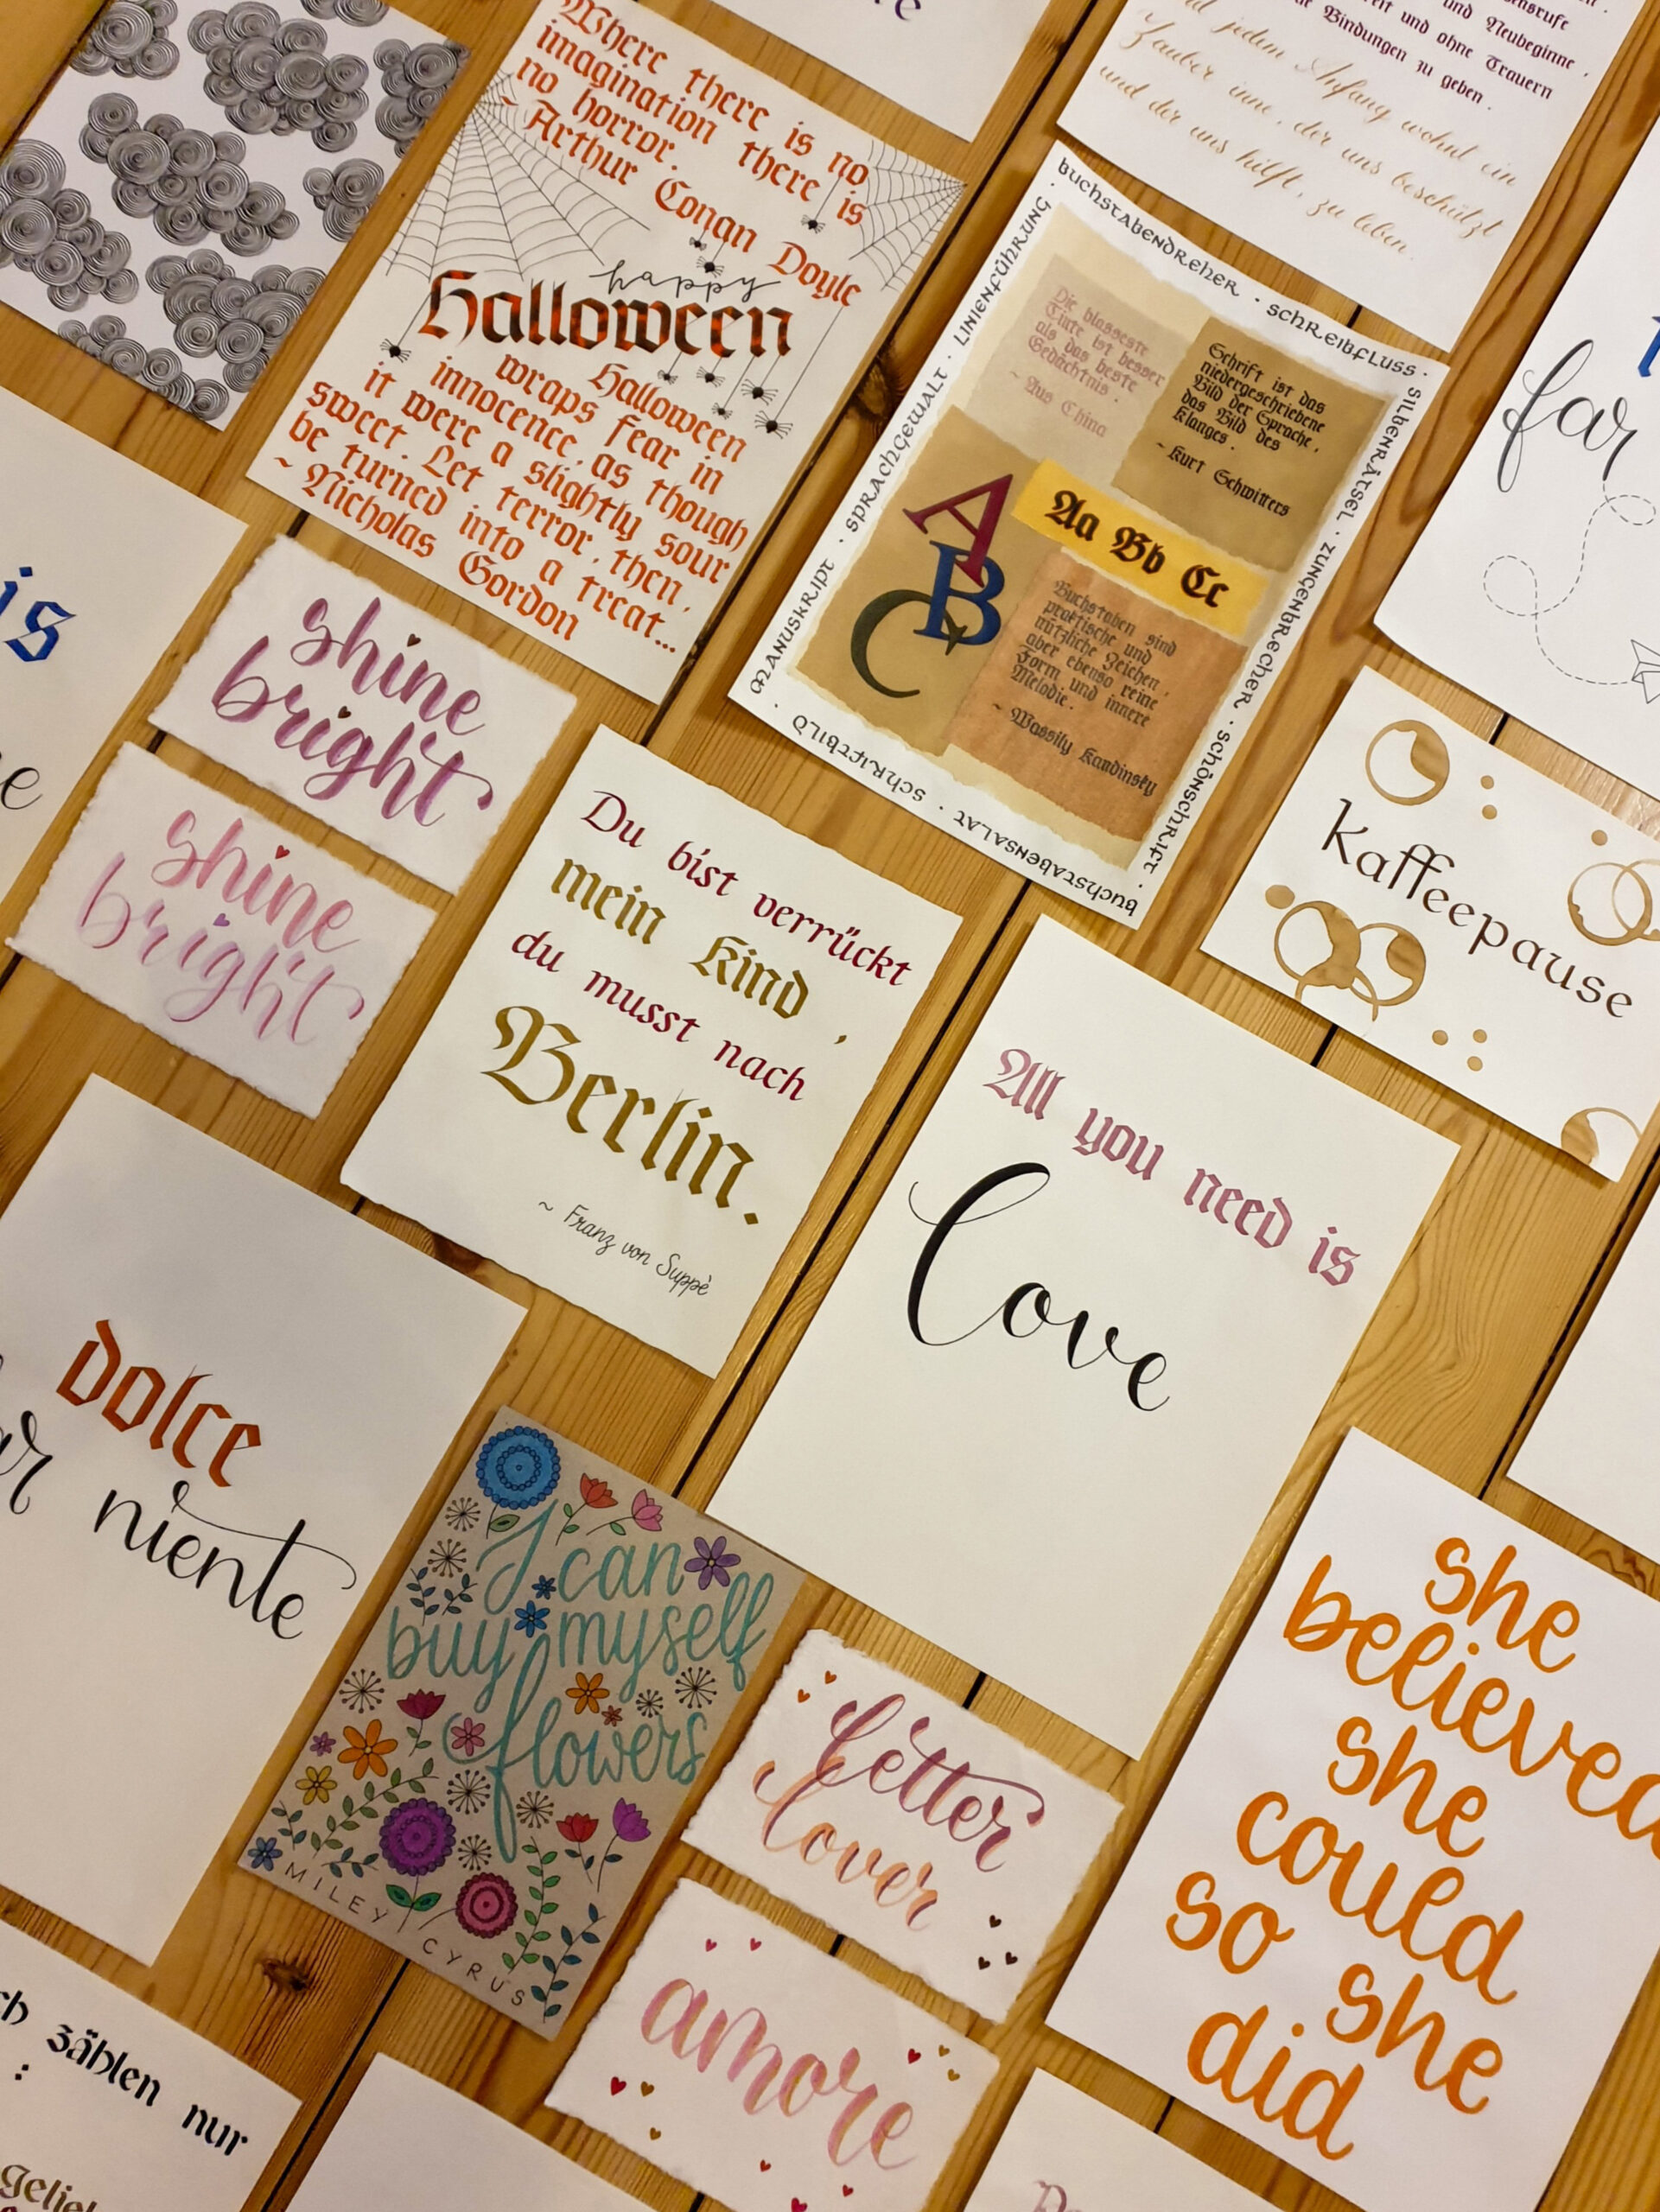 Where there is no
imagination there is
no horror.
~ Arthur Conan Doyle
happy
Halloween
Halloween
wraps fear in
innocence, as though
it were a slightly sour
sweet. Let terror, then,
be turned into a treat...
~ Nicholas Gordon
und Neubeginne,
und ohne Trauern
Bindungen zu geben.
jedem Anfang wohnt ein
Zauber inne, der uns beschützt
und der uns hilft, zu leben.
Buchstabendreher · Schreibfluss ·
Silbenrätsel · Zungenbrecher · Schönschrift ·
Buchstabensalat · Schriftbild ·
Manuskript · Sprachgewalt · Linienführung ·
Die blasseste
Tinte ist besser
als das beste
Gedächtnis.
~ Aus China
Schrift ist das
niedergeschriebene
Bild der Sprache,
das Bild des
Klanges.
~ Kurt Schwitters
A
B
C
Aa Bb Cc
Buchstaben sind
praktische und
nützliche Zeichen,
aber ebenso reine
Form und innere
Melodie.
~ Wassily Kandinsky
far
kaffeepause
is
shine
bright
shine
bright
Du bist verrückt
mein Kind,
du musst nach
Berlin.
~ Franz von Suppè
All you need is
Love
dolce
niente
I can
buy myself
flowers
MILEY CYRUS
letter
lover
amore
she
believed
she
could
so she
did
zählen nur
: